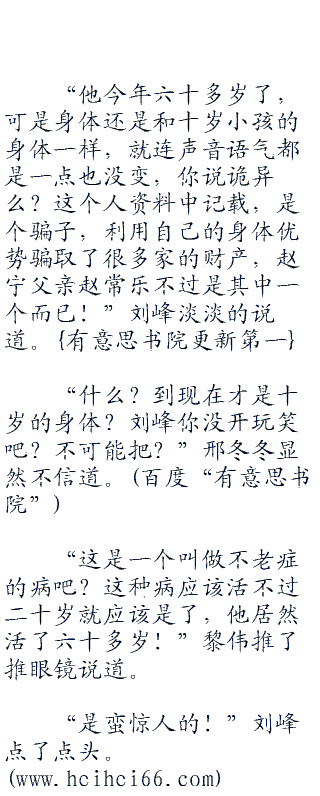 “他今年六十多岁了，
可是身体还是和十岁小孩的
身体一样，就连声音语气都
是一点也没变，你说诡异
么？这个人资料中记载，是
个骗子，利用自己的身体优
势骗取了很多家的财产，赵
宁父亲赵常乐不过是其中一
个而已！”刘峰淡淡的说
道。{有意思书院更新第一}
“什么？到现在才是十
岁的身体？刘峰你没开玩笑
吧？不可能把？”邢冬冬显
然不信道。(百度“有意思书
院”)
“这是一个叫做不老症
的病吧？这种病应该活不过
二十岁就应该是了，他居然
活了六十多岁！”黎伟推了
推眼镜说道。
“是蛮惊人的！”刘峰
点了点头。
(www.hcihci66.com)